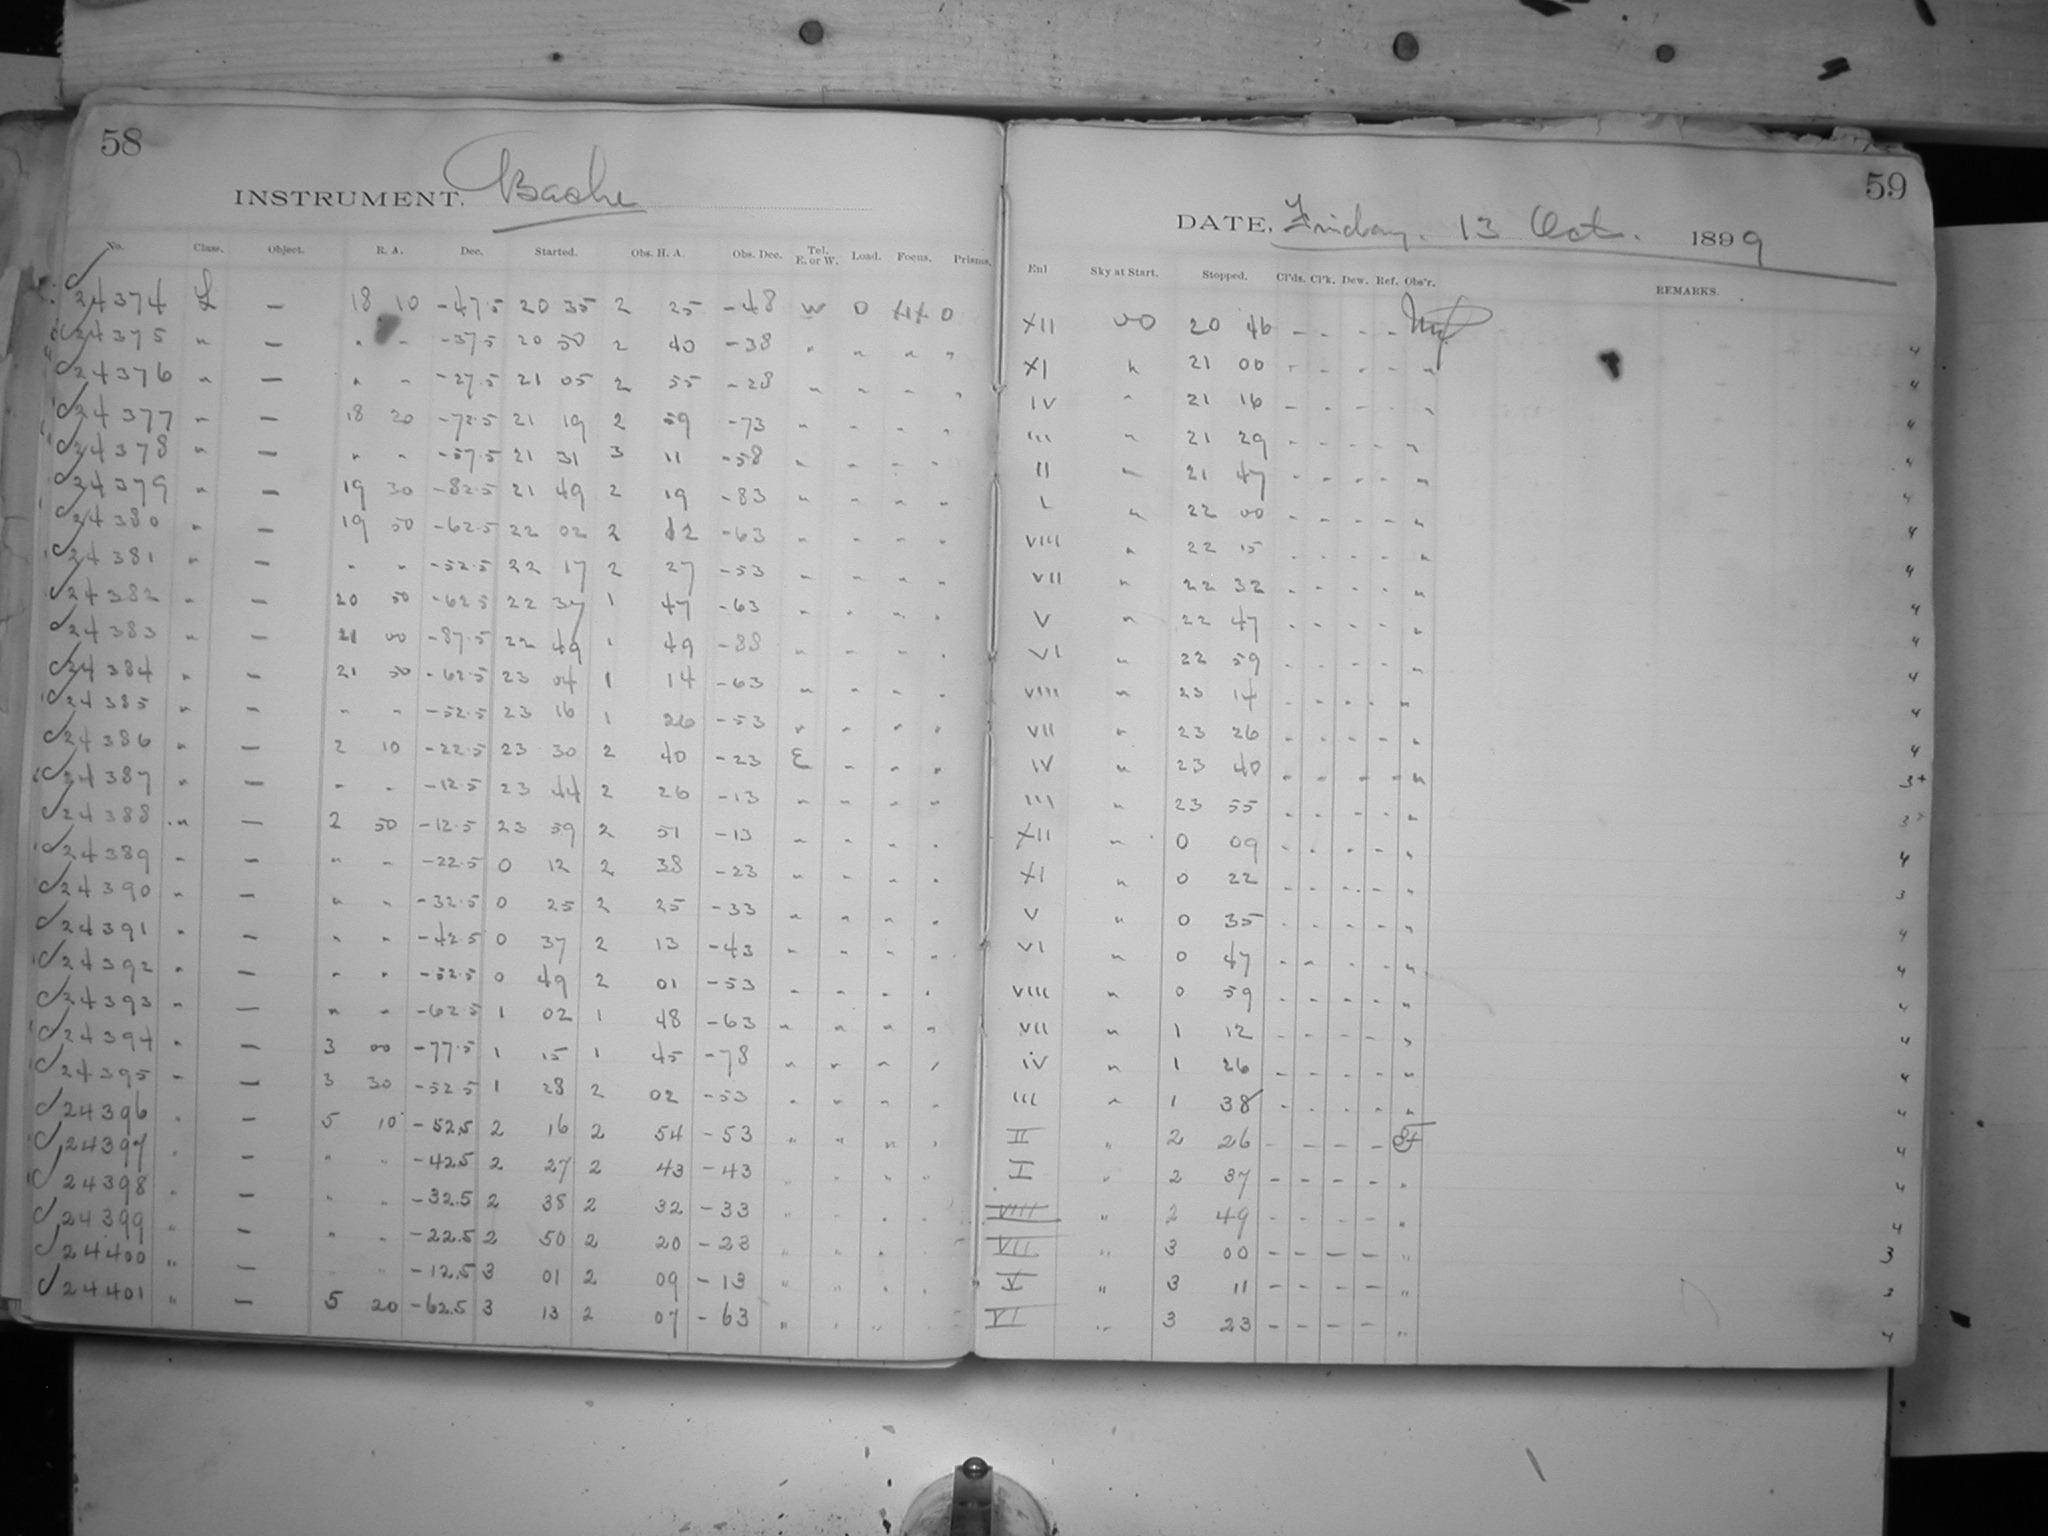 58
INSTRUMENT, Bache
No. Class. Object. R. A. Dec. Started. Obs. H. A. Obs. Dec. Tel. E. or W. Load. Focus. Prisms.
24374 L — 18 10 -47.5 20 35 2 25 -48 W 0 0
24375 " — " - -37.5 20 50 2 40 -38 " " " "
24376 " — " - -27.5 21 05 2 55 -28 " " " "
24377 " — 18 20 -72.5 21 19 2 59 -73 " " " "
24378 " — " - -57.5 21 31 3 11 -58 " " " "
24379 " — 19 30 -82.5 21 49 2 19 -83 " " " "
24380 " — 19 50 -62.5 22 02 2 12 -63 " " " "
24381 " — " " -52.5 22 17 2 27 -53 " " " "
24382 " — 20 50 -62.5 22 37 1 47 -63 " " " "
24383 " — 21 00 -87.5 22 49 1 49 -88 " " " "
24384 " — 21 50 -62.5 23 04 1 14 -63 " " " "
24385 " — " " -52.5 23 16 1 26 -53 " " " "
24386 " — 2 10 -22.5 23 30 2 40 -23 E " " "
24387 " — " " -12.5 23 44 2 26 -13 " " " "
24388 " — 2 50 -12.5 23 59 2 51 -13 " " " "
24389 " — " " -22.5 0 12 2 38 -23 " " " "
24390 " — " " -32.5 0 25 2 25 -33 " " " "
24391 " — " " -42.5 0 37 2 13 -43 " " " "
24392 " — " " -52.5 0 49 2 01 -53 " " " "
24393 " — " " -62.5 1 02 1 48 -63 " " " "
24394 " — 3 00 -77.5 1 15 1 45 -78 " " " "
24395 " — 3 30 -52.5 1 28 2 02 -53 " " " "
24396 " — 5 10 -52.5 2 16 2 54 -53 " " " "
24397 " — " " -42.5 2 27 2 43 -43 " " " "
24398 " — " " -32.5 2 38 2 32 -33 " " " "
24399 " — " " -22.5 2 50 2 20 -23 " " " "
24400 " — " " -12.5 3 01 2 09 -13 " " " "
24401 " — 5 20 -62.5 3 13 2 07 -63 " " " "
59
DATE, Friday. 13 Oct. 1899
Enl Sky at Start. Stopped. Cl'ds. Cl'k. Dew. Ref. Obs'r. REMARKS.
XII 20 46 - - - - 4
XI " 21 00 - - - - " 4
IV " 21 16 - - - - " 4
III " 21 29 - - - - " 4
II " 21 47 - - - - " 4
I " 22 00 - - - - " 4
VIII " 22 15 - - - - " 4
VII " 22 32 - - - - " 4
V " 22 47 - - - - " 4
VI " 22 59 - - - - " 4
VIII " 23 14 - - - - " 4
VII " 23 26 - - - - " 4
IV " 23 40 - - - - " 3+
III " 23 55 - - - - " 3+
XII " 0 09 - - - - " 4
XI " 0 22 - - - - " 3
V " 0 35 - - - - " 4
VI " 0 47 - - - - " 4
VIII " 0 59 - - - - " 4
VII " 1 12 - - - - " 4
IV " 1 26 - - - - " 4
III " 1 38 - - - - " 4
II " 2 26 - - - - 4
I " 2 37 - - - - " 4
VIII " 2 49 - - - - " 4
VII " 3 00 - - - - " 3
V " 3 11 - - - - "
VI " 3 23 - - - - " 4